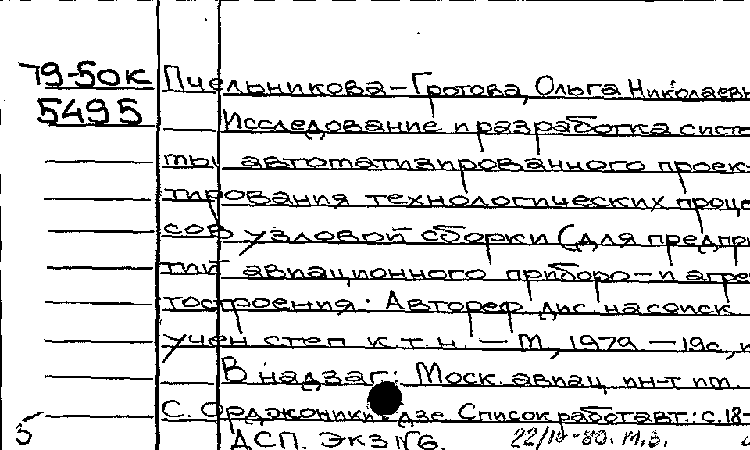 79-50к Пчельникова-Гротова, Ольга Николаевн
5495 Исследование и разработка систе-
мы автоматизированного проек-
тирования технологических проце
сов узловой сборки (для предпри
тий авиационного приборо- и агре
тостроения: Автореф дис на соиск
учен степ к.т.н. — М., 1979. — 19с,
В надзаг: Моск. авиац. ин-т им.
С. Орджоникидзе. Список работ авт.: с. 18-
5 ДСП. Экз №6. 22/IV-80. м.в.